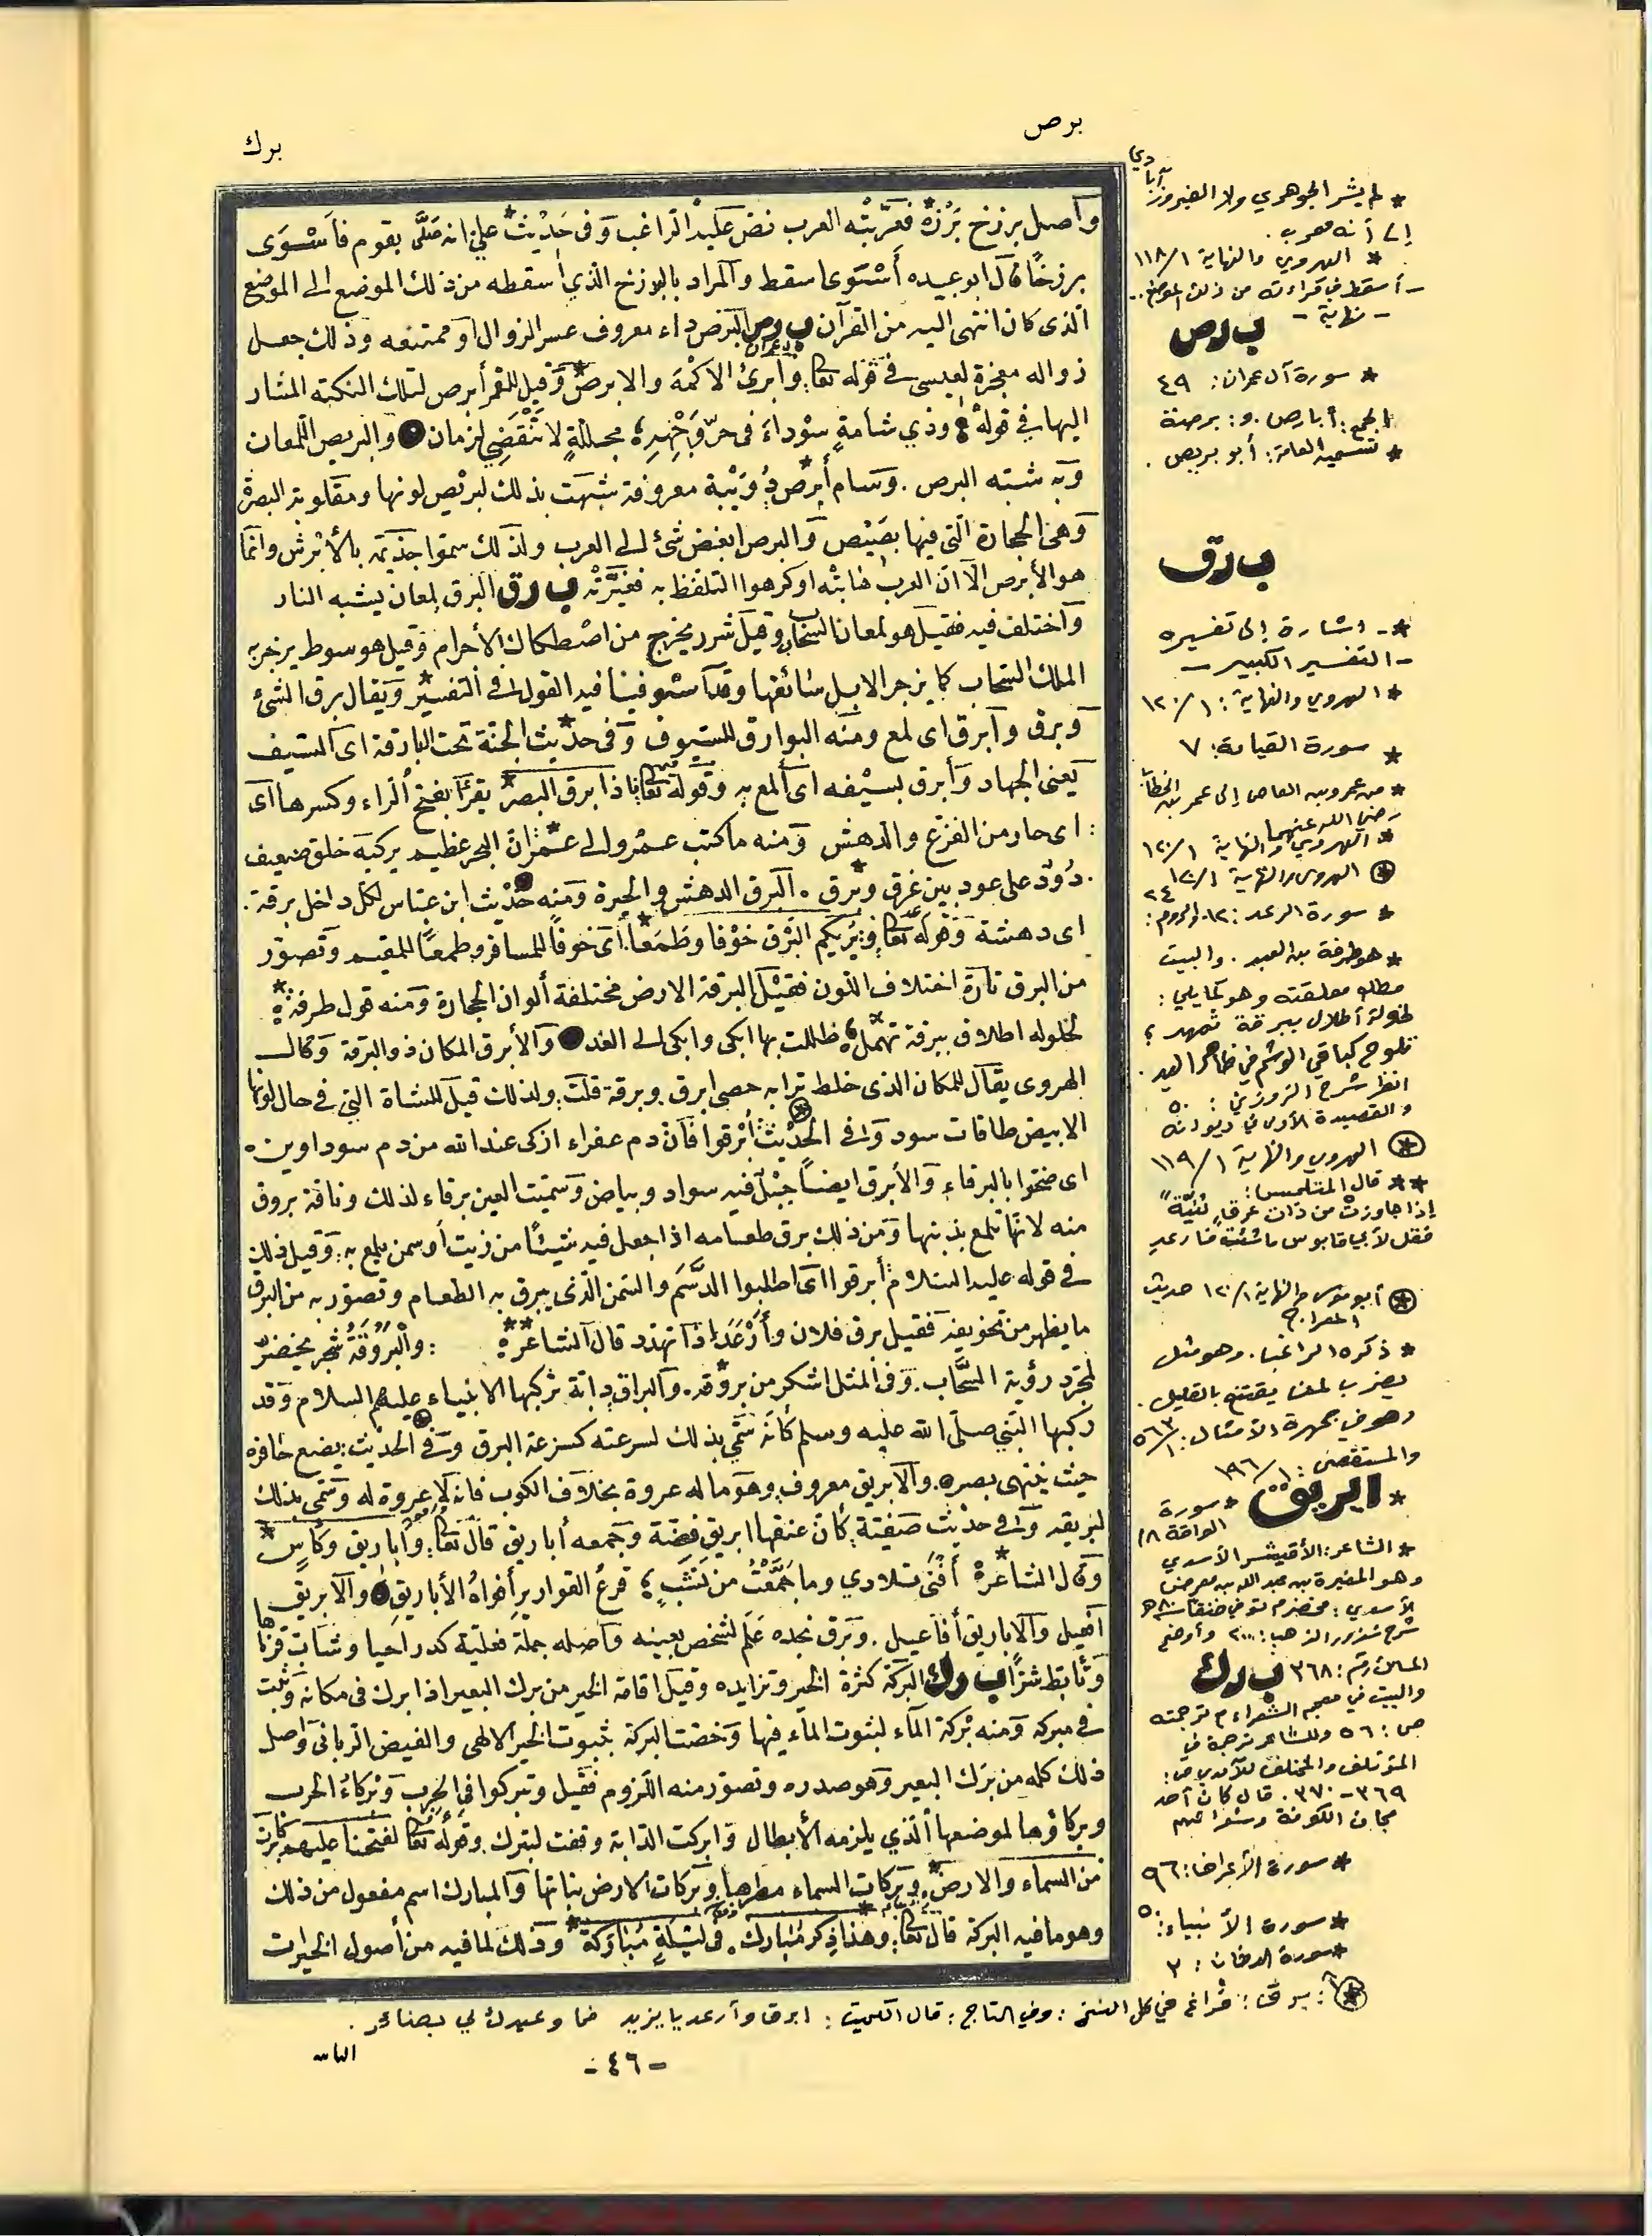 برص
برك
وأصل برزخ بَرْزَهْ* فعرّبته العرب نصّ عليه الراغب وفى حَدِيْث* علي انه صَلَّى بقوم فأَسْوَى
برزخًا قال ابو عبيده أَسْوَى اسقط والمراد بالبرزخ الذي أسقطه من ذلك الموضع الى الموضع
الذى كان انتهى اليه من القرآن ب رص البَرَص داء معروف عسر الزوال او ممتنعه وذلك جعل
زواله معجزة لعيسى فى قوله تعالى: وأبرئ الاكْمَهَ والابرصَ* وقيل للقمر أبرص لتلك النكتة المشار
اليها في قوله وذي شامةٍ سوْداءَ فى حرّ وَجْهِهِ؛ مجللةٍ لا تَنْقَضِي لزمان والبريص اللمعان
وبه شبّه البرص. وسام أبرصَ* دُوَيْبة معروفة شبهت بذلك لبريْص لونها ومقلوبة البصرة
وهى الحجارة الّتى فيها بصيْص والبرص ابغض شئ الى العرب ولذلك سموا جذيمة بالأبْرش وانما
هو الأبرص الّا انّ العرب هابتْه او كرهوا التلفظ به فغيّرَتْه ب رق البرق لمعان يشبه النار
واختلف فيه فقيل هو لمعان السحاب وقيل شرر يخرج من اصْطكاك الأجرام وقيل هو سوط يزجر به
الملك السحاب كما يزجر الابل سائقها وقد استوفينا فيه القول فى التفسير* ويقال برق الشئ
وبرق وأبرق اى لمع ومنه البوارق للسيوف وفى حديْث* الجنة تحت البارقة اى السيف
يعنى الجهاد وأبرق بسيْفه اى ألمع به وقوله تعالى: فاذا برق البصر* يقرأ بفتح الراء وكسرها اى
: اى حار من الفزع والدهش ومنه ما كتب عمرو الى عمر* انّ البحر عظيم يركبه خلق ضعيف
. دُوْدٌ على عود بين غرق وبرق*. البرق الدهش والحيرة ومنه حديْث ابن عبّاس لكل داخل برقة.
اى دهشة وقوله تعالى: يُرِيكم البَرْق خوْفا وطَمَعًا* اى خوفاً للمسافر وطمعًا للمقيم وتصوّر
من البرق تارة اختلاف اللون فقيْل البرقة الارض مختلفة ألوان الحجارة ومنه قول طرفة*
لخلوله اطلاق ببرقة ثهمل* ظللت بها ابكى وابكى الى الغد والأبرق المكان ذو البرقة وقال
الهروى يقال للمكان الذى خلط ترابه حصى ابرق وبرقة قلت: ولذلك قيل للشاة التي فى حال لونها
الابيض طاقات سود وفى الحديْث أبْرقوا فانّ دم عفراء ازكى عند الله من دم سوداوين.
اى ضحّوا بالبرقاء والأبرق ايضًا جبْل فيه سواد وبياض وسمّيت العين برقاء لذلك وناقة بروق
منه لانها تلمع بذنبها ومن ذلك برق طعامه اذا جعل فيه شيئًا من زيت أو سمن يلمع به: وقيل ذلك
فى قوله عليه السلام أبرقوا اى اطلبوا الدَّسَمَ والسّمن الّذى يبرق به الطعام وتصوّر به من البرق
ما يظهر من تخويفه فقيل برق فلان وأَرْعَدَ اذا تهدّد قال الشاعر** : والْبَرُوَقَةُ شجر يخضرّ
لمجرّد رؤية السّحَاب. وفى المثل اشكر من بروقة*. والبراق دابّة تركبها الانبياء عليهم السلام وقد
ركبها النّبيّ صلّى الله عليه وسلم كأنّه سُمّي بذلك لسرعته كسرعة البرق وفى الحديْث: يضع حافره
حيث ينتهى بصره. والابريق معروف وهو ما له عروة بخلاف الكوب فانه لا عروة له وسمّى بذلك
لبريقه وفى حديْث صفيّة كأنّ عنقها ابريق فضّة وجمعه أباريق قال تعالى: وأباريق وكأسٍ*
وقال الشاعر* أفْنَى تلادي وما جَمَّعْتُ من نَشَبٍ؛ قرعُ القوارير أفواهُ الأباريقِ والابريق
افعيل والأباريق أفاعيل. وبرق نحره عَلَم لشخص بعينه واصله جملة فعليّة كدر احيا وشاب قرناها
وتأبّط شرًّا ب رك البركة كثرة الخير وتزايده وقيل اقامة الخير من برك البعير اذا برك فى مكانه وثبت
فى مبركه ومنه بْركة المآء لثبوت المآء فيها وخصّت البركة بثبوت الخير الالهى والفيض الربانى واصل
ذلك كله من بَرْك البعير وهو صدره وتصوّر منه اللّزوم فقيل وتبركوا فى الحرب وبْركاءُ الحرب
وبركاؤها لموضعها الّذي يلزمه الأبطال وابركت الدّابة وقفت لتبرك وقوله تعالى لفتحنا عليهم بركات
من السماء والارض* وبركات السماء مطرها وبركات الارض نباتها والمبارك اسم مفعول من ذلك
وهو ما فيه البركة قال تعالى: وهذا ذكر مُبارك*. فى ليْلَةٍ مُبَارَكة* وذلك لما فيه من أصول الخيرات
* لم يشر الجوهري ولا الفيروزآبادي
إلى أنه معرب.
* الهروي والنهاية ١/١١٨
- أسقط في قراءته من ذلك الموضع..
- نهاية -
ب رص
* سورة آل عمران: ٤٩
الجمع: أبارص. و: برصة
* تسميه العامة: أبو بريص.
ب رق
* - اشارة إلى تفسيره
- التفسير الكبير -
* الهروي والنهاية: ١/١٢٠
* سورة القيامة: ٧
* من عمرو بن العاص إلى عمر بن الخطاب
رضي الله عنهما
* الهروي والنهاية ١/١٢٠
* الهروي والنهاية ١/١٢٠
* سورة الرعد: ١٢. الروم: ٢٤
* هو طرفة بن العبد. والبيت
مطلع معلقته وهو كما يلي:
لخولة أطلال ببرقة ثهمد؛
تلوح كباقي الوشم في ظاهر اليد.
انظر شرح الزوزني: ٥٠
والقصيدة الأولى في ديوانه
* الهروي والنهاية ١/١١٩
** قال المتلمس:
إذا جاوزتْ من ذات عرقٍ ثنيّة
فقل لأبي قابوس ما شئت فارعد
* أبو موسى والنهاية ١/١٢٠ حديث
المعراج
* ذكره الراغب. وهو مثل
يضرب لمن يقتنع بالقليل.
وهو في جمهرة الأمثال: ١/٥٦٣
والمستقصى: ١/١٩٦
* ابريق * سورة
الواقعة /١٨
* الشاعر: الأقيشر الأسدي
وهو المغيرة بن عبد الله بن معرض
الأسدي: مخضرم توفي خنقا ٨٠ هـ
شرح شذور الذهب: ٢٠٠ وأوضح
المسالك رقم: ٣٦٨ ب رك
والبيت في معجم الشعراء م ترجمته
ص: ٥٦ وللشاعر ترجمة في
المؤتلف والمختلف للآمدي ص:
٣٦٩-٣٧٠. قال كان أحد
مجان الكوفة وشعرائهم
* سورة الأعراف: ٩٦
* سورة الأنبياء: ٥٠
* سورة الدخان: ٣
*: برق: فراغ في كل النسخ: وفي التاج: قال الكميت: ابرق وأرعد يا يزيد فما وعيدك لي بضائر.
-٤٦-